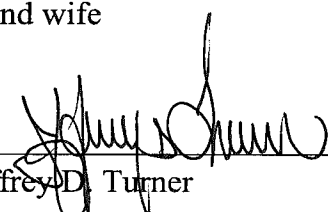 nd wife
ffrey D. Turner